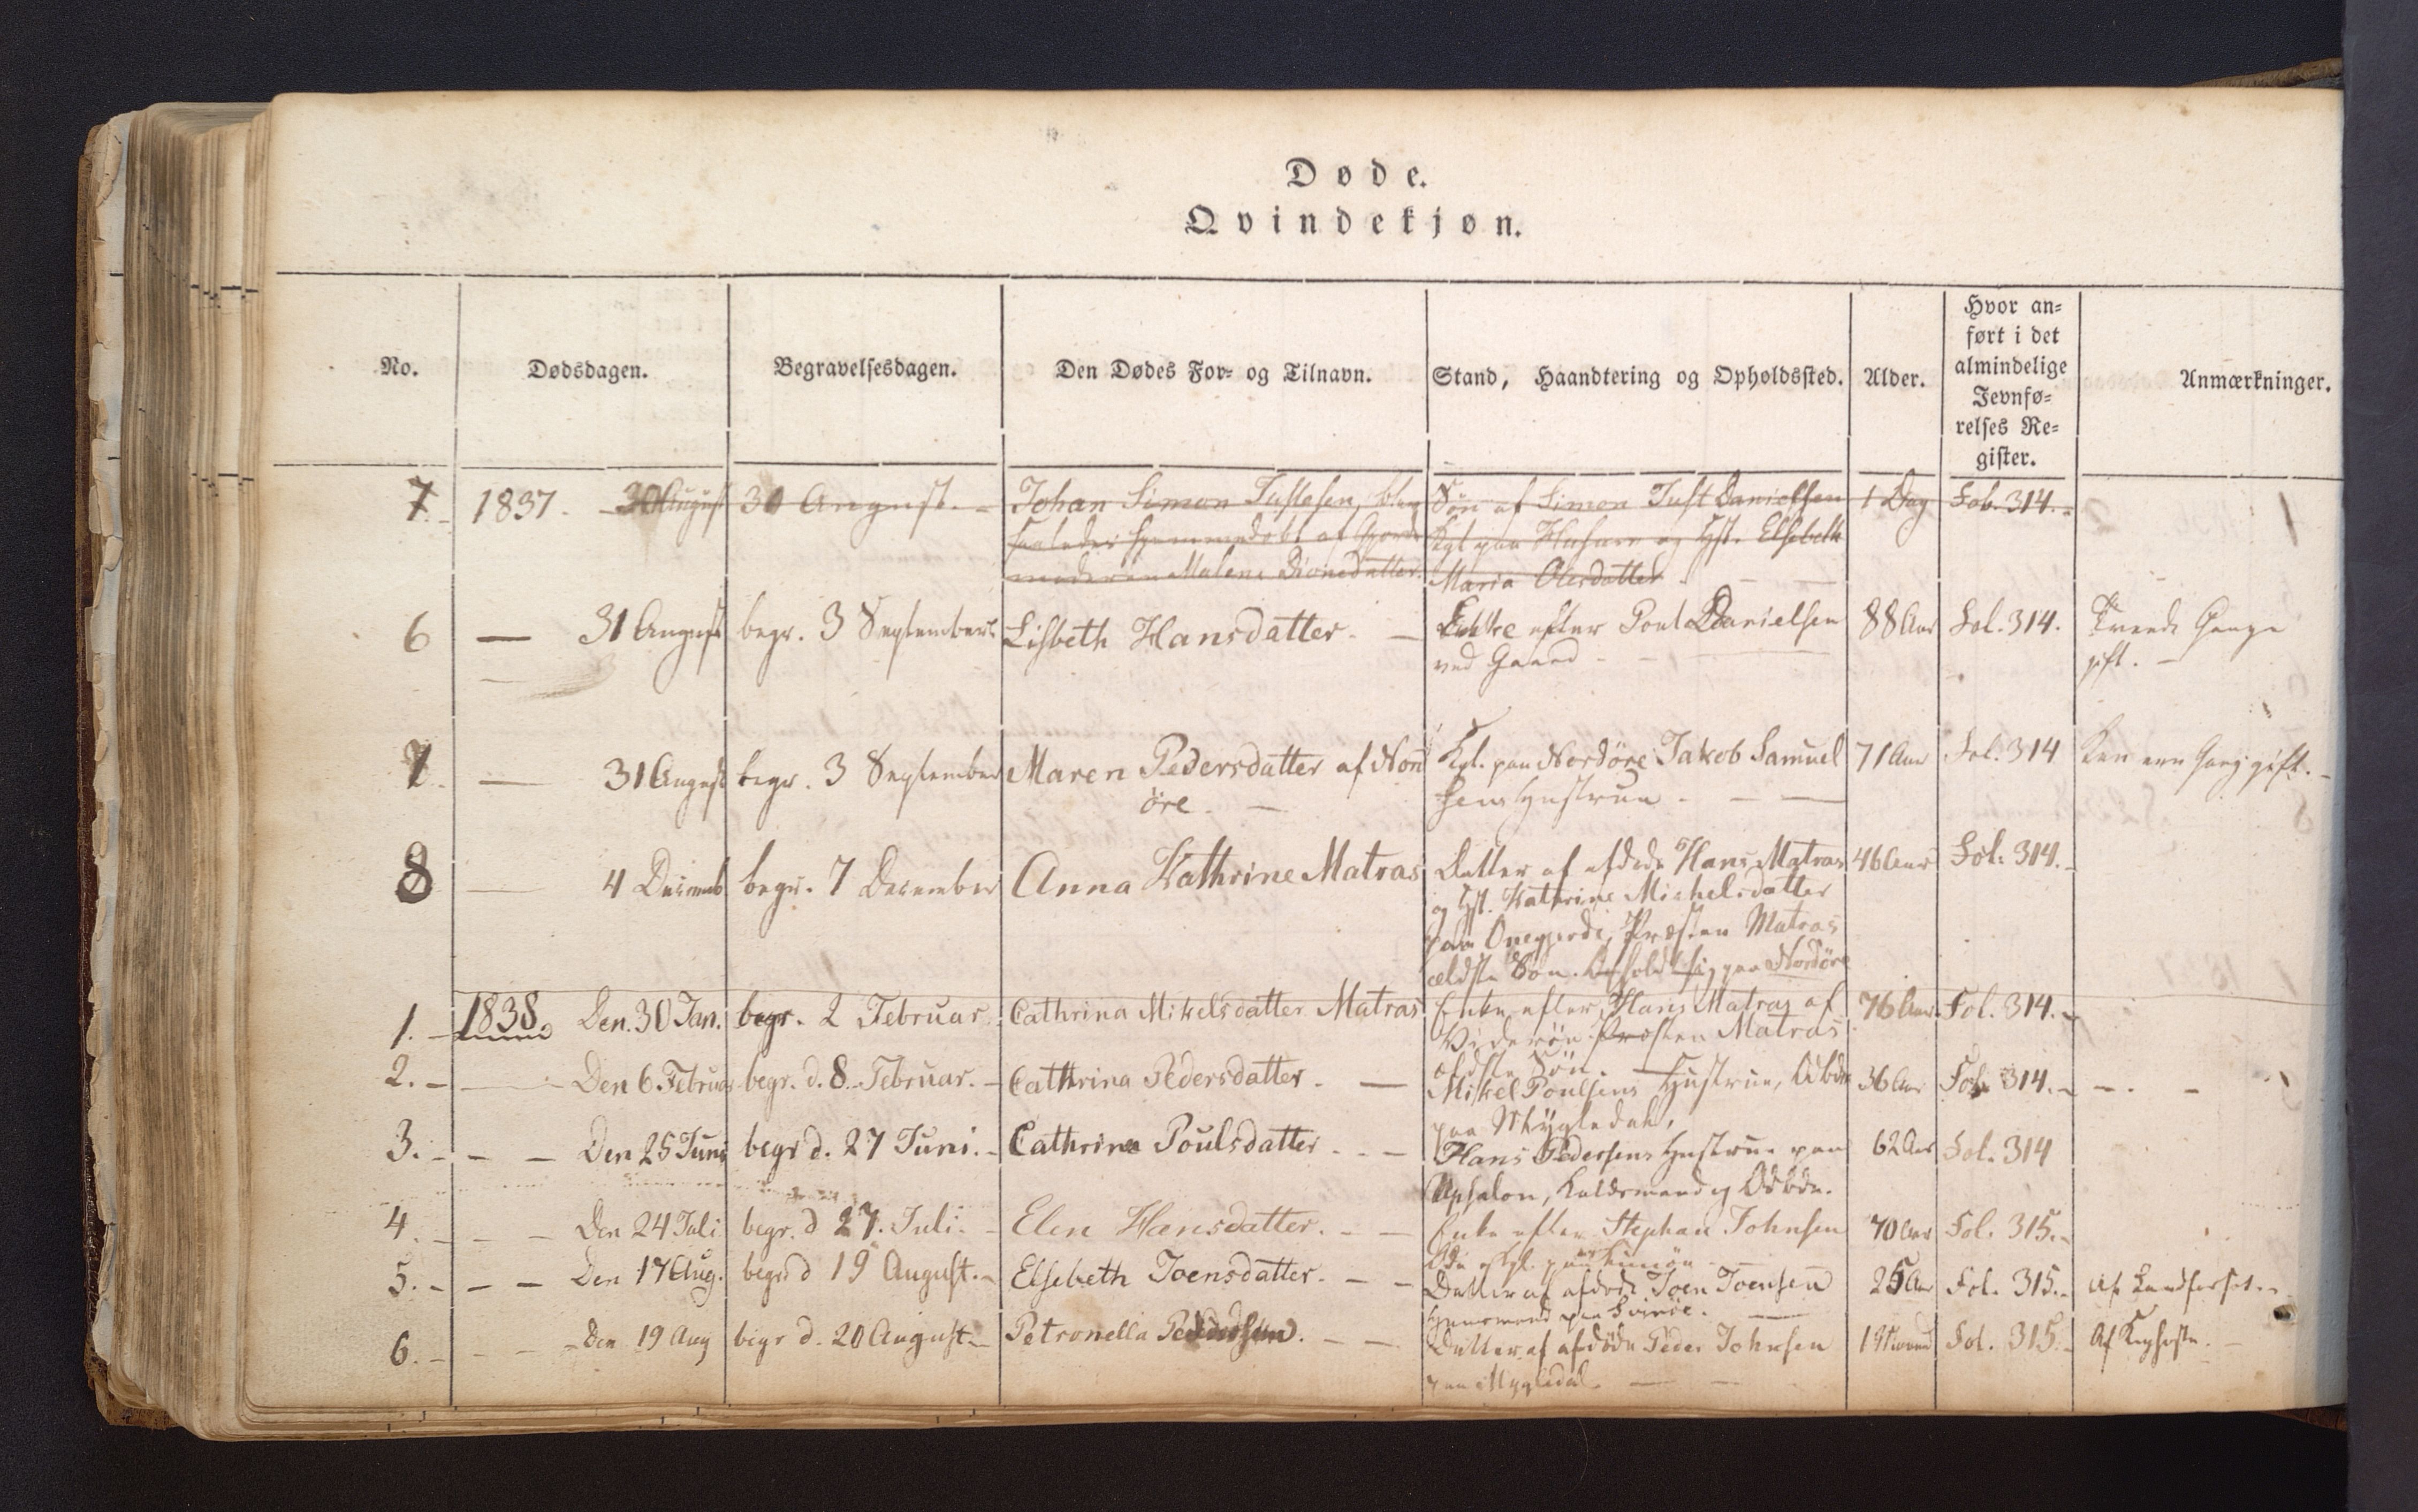 Døde.
Qvindekjøn.
No. Dødsdagen. Begravelsesdagen. Den Dødes For- og Tilnavn. Stand, Haandtering og Opholdssted. Alder. Hvor an=
ført i det
almindelige
Jevnfø=
relses Re=
gister. Anmærkninger.
7. 1837. 30 August 30 August. Johan Simon Justesen, blev Søn af Simon Just Danielsen 1 Dag Fol. 314.
saaledes hjemmedøbt af Gjorde Kgl. paa Husum og Hst. Elsebeth
moderen Malene Simonsdatter. Maria Olesdatter
6 — 31 August begr. 3 September Lisbeth Hansdatter. — Enke efter Poul Danielsen 88 Aar Fol. 314. Tvende Gange
ved Gaard gift. —
7. — 31 August begr. 3 September Maren Pedersdatter af Nord Kgl. paa Nordöre Jakob Samuel 71 Aar Fol. 314 Kun een Gang gift. —
öre. — sens Hustrue. — —
8 — 4 Decemb begr. 7 December Anna Kathrine Matras Datter af afdøde Hans Matras 46 Aar Fol. 314.
og Hst. Kathrine Michelsdatter
paa Onegjerde, Præsten Matras
ældste Søn. Opholdt sig paa Nordöre
1. 1838. Den 30 Jan. begr. 2 Februar. Cathrina Mikelsdatter Matras Enke efter Hans Matras af 76 Aar. Fol. 314.
Videröe Præsten Matras
ældste Søn.
2. — Den 6. Februar begr. d. 8. Februar. — Cathrina Pedersdatter. — Mikel Poulsens Hustrue, Odbdr 36 Aar Fol. 314. — — . —
paa Mygledal,
3. — — Den 25 Juni begr d. 27 Juni. — Cathrina Poulsdatter — — Hans Pedersens Hustrue paa 62 Aar Fol. 314
Upsalon, og Odbdr.
4. — — Den 24 Juli begr. d 27. Juli. — Elen Hansdatter. — — Enke efter Stephan Johnsen 70 Aar Fol. 315.
paa
5. — — Den 17 Aug. begr d 19 August. — Elsebeth Joensdatter. — — Datter af afdøde Joen Joensen 25 Aar Fol. 315. Af Landfarsot.
paa Svinöe. —
6. — — Den 19 Aug begr d. 20 August. — Petronella Pedersen. — — Datter af afdøde Peder Johnsen Fol. 315. Af Kighoste. —
paa Mygledal. — —